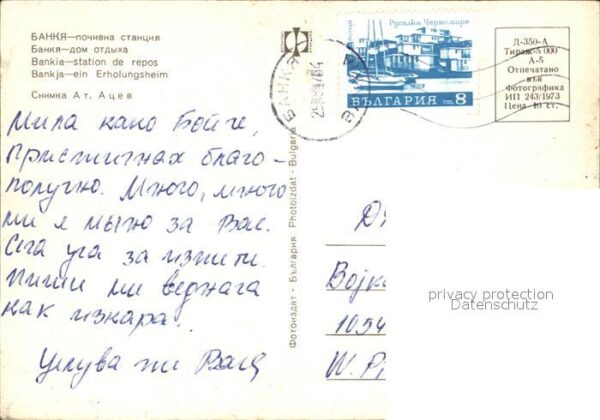 БАНКЯ—почивна станция
Банкя—дом отдыха
Bankia—station de repos
Bankja—ein Erholungsheim
Снимка Ат. Ацев
Мила како Бойче,
Пристигнах благо-
получно. Много, много
ми я мъчно за Вас.
Сега уча за изпити.
Пиши ми веднага
как изкара.
Целува ти
Фотоиздат - България Photoizdat - Bulgaria
БАНКЯ
Русалки Черноморие
БЪЛГАРИЯ ст. 8
Д-350-А
Тираж 5 000
А-5
Отпечатано
във
Фотографика
ИП 243/1973
Цена 10 ст.
1054
W.
privacy protection
Datenschutz